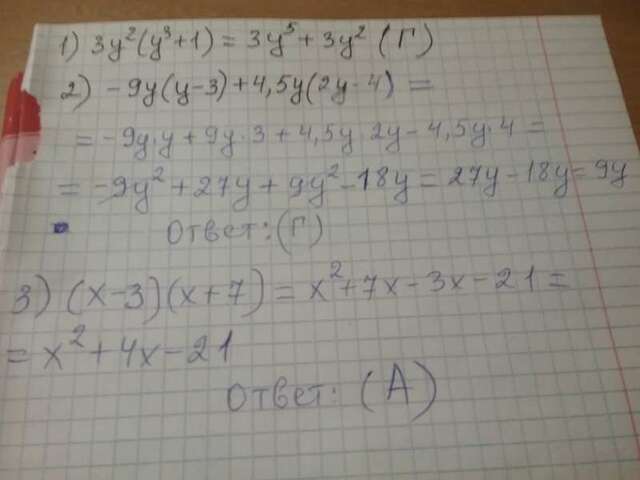 1) 3y²(y³+1) = 3y⁵ + 3y² (Г)
2) -9y(y-3)+4,5y(2y-4) =
= -9y·y + 9y·3 + 4,5y·2y - 4,5y·4 =
= -9y² + 27y + 9y² - 18y = 27y - 18y = 9y
Ответ: (Г)
3) (x-3)(x+7) = x² + 7x - 3x - 21 =
= x² + 4x - 21
Ответ: (А)